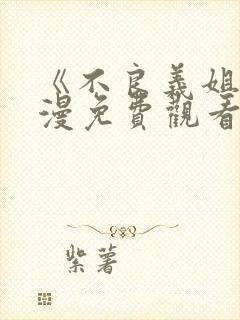 《不良義姐
漫免費觀看
紫薯